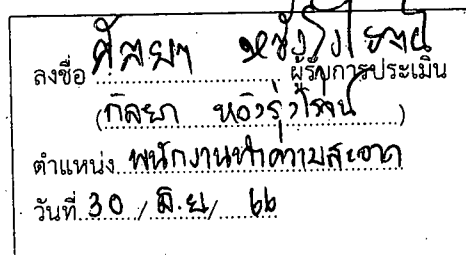 ลงชื่อ ผู้รับการประเมิน
(กัลยา หวังรุ่งโรจน์)
ตำแหน่ง พนักงานทำความสะอาด
วันที่ 30 / มิ.ย / 66